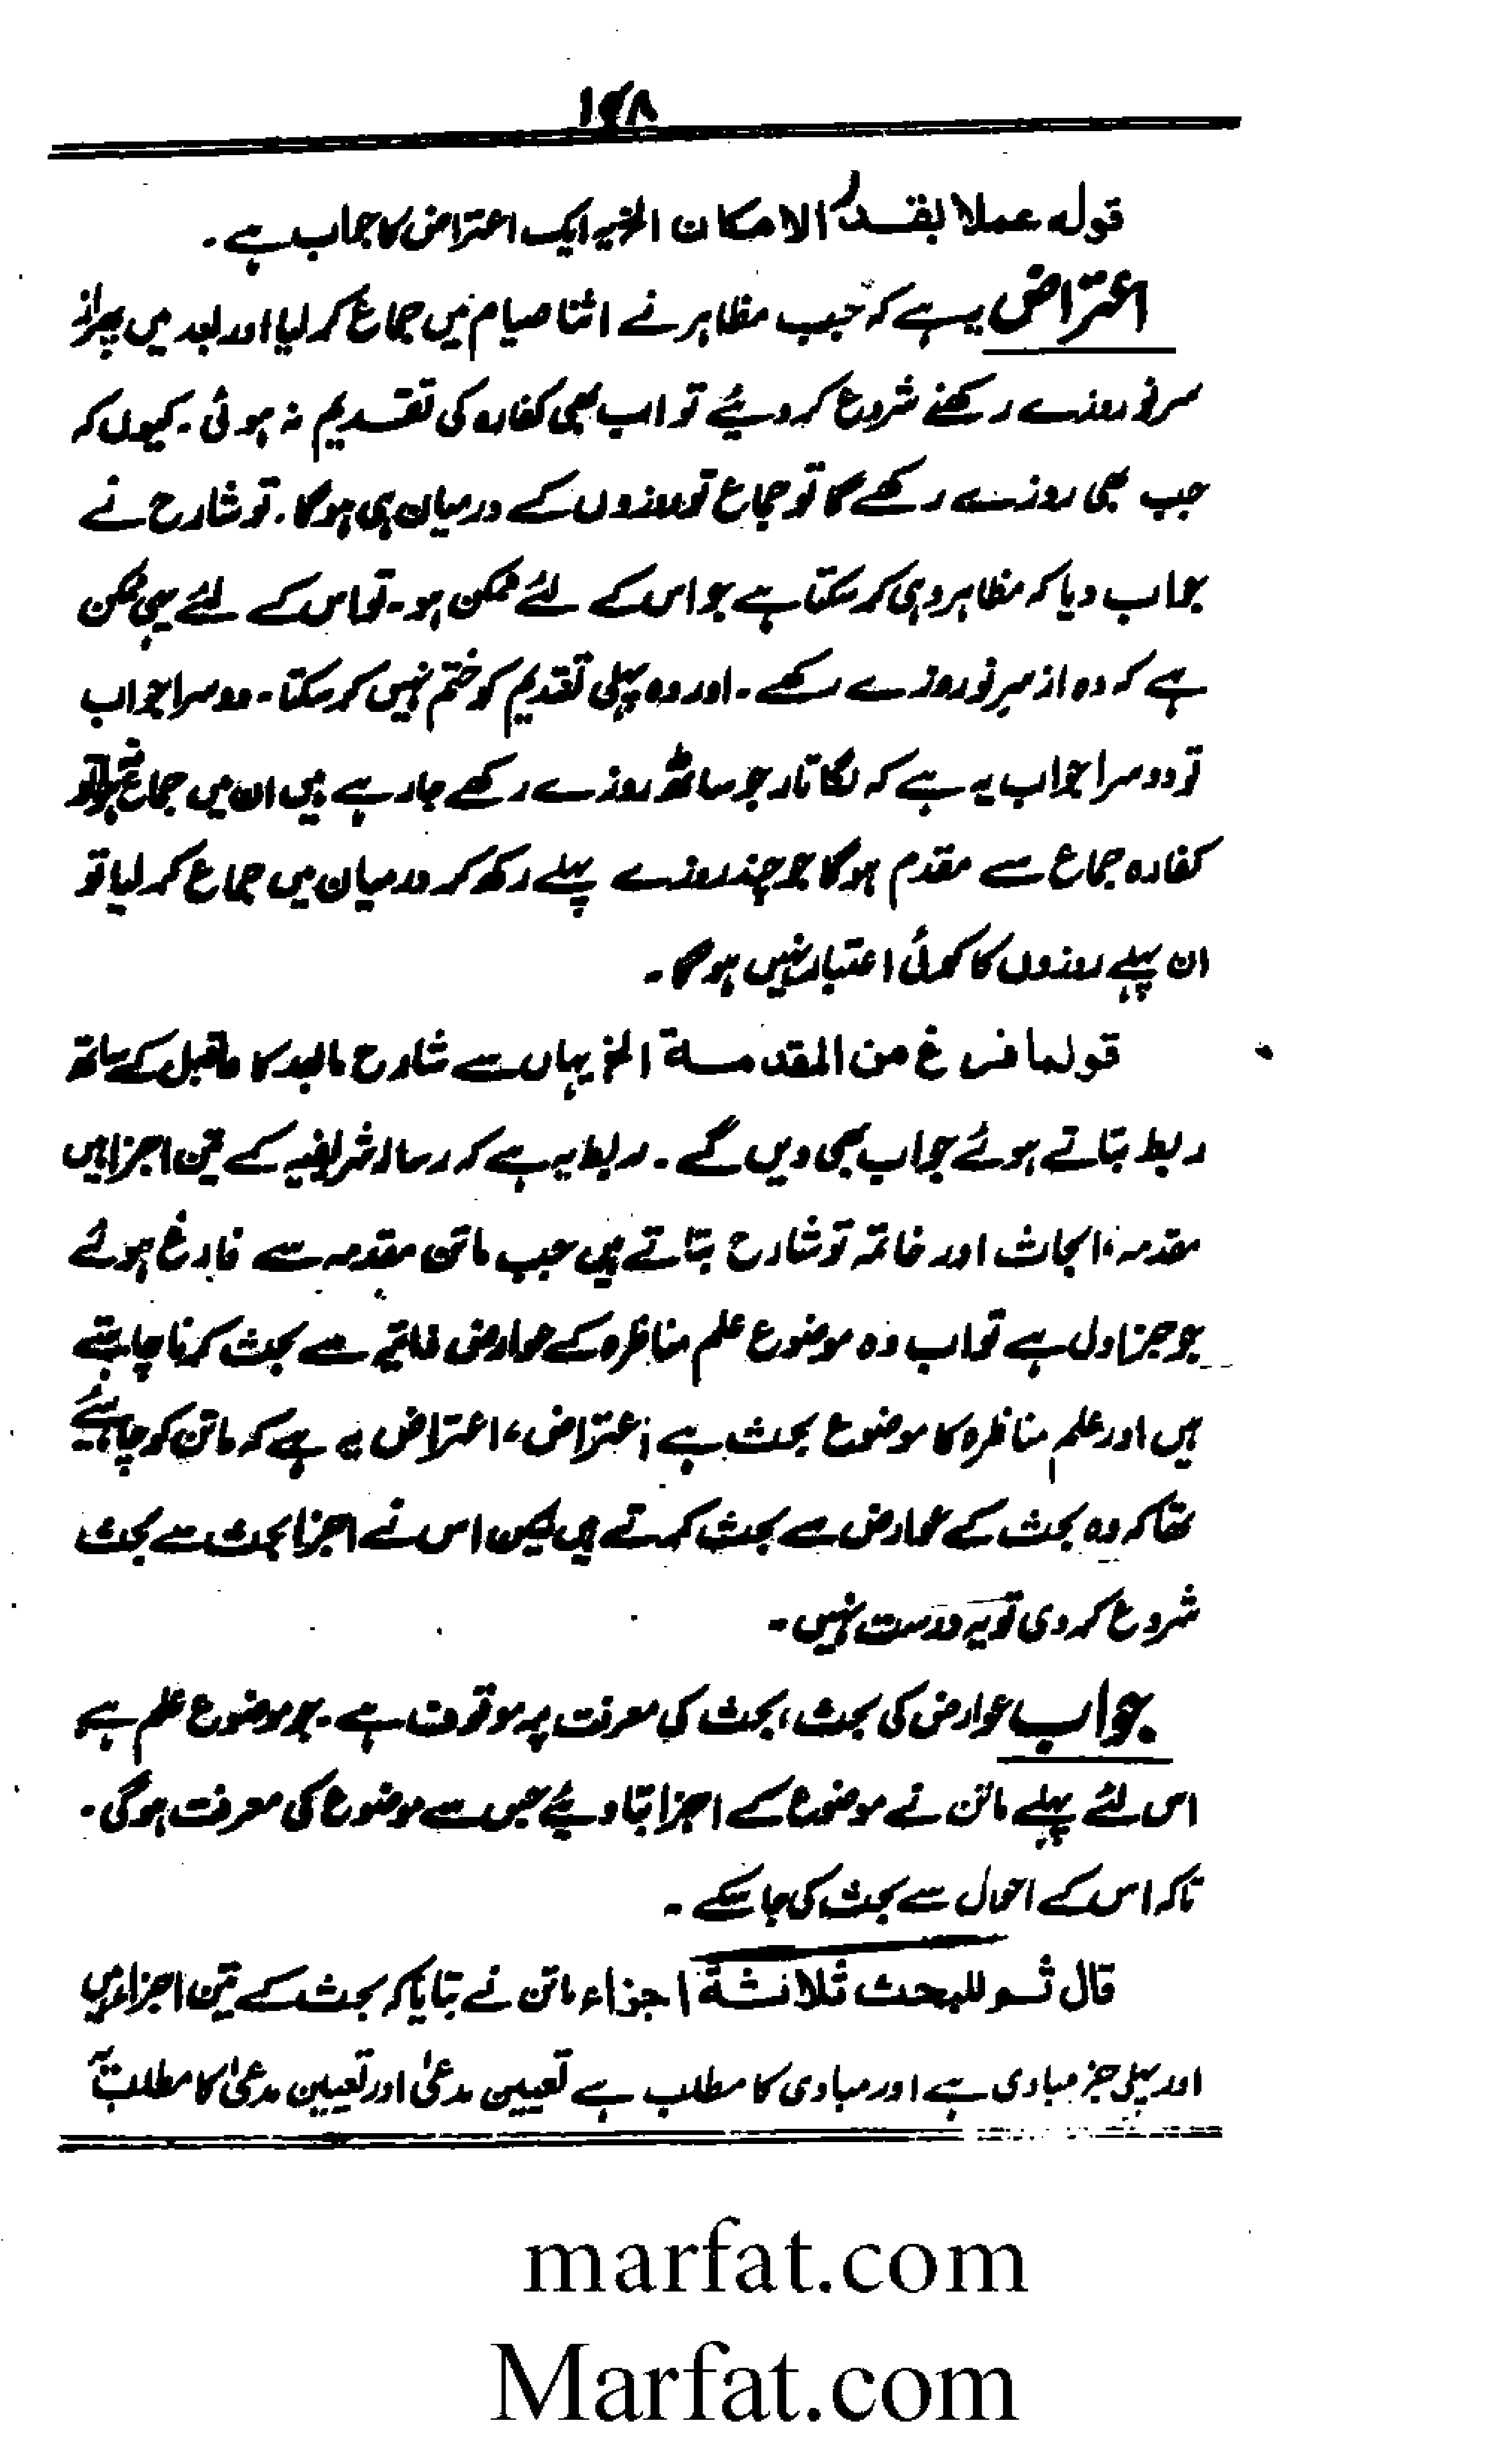 ۱۴۸
قوله عملا بقدر الامكان الخ یہ ایک اعتراض کا جواب ہے۔
اعتراض یہ ہے کہ جب مظاہر نے اثنا صیام میں جماع کر لیا اور بعد میں پھر از
سر نو روزے رکھنے شروع کر دیئے تو اب بھی کفارہ کی تقدیم نہ ہوئی۔ کیوں کہ
جب بھی روزے رکھے گا تو جماع تو روزوں کے درمیان ہی ہو گا۔ تو شارح نے
جواب دیا کہ مظاہر وہی کر سکتا ہے جو اس کے لئے ممکن ہو۔ تو اس کے لئے یہی ممکن
ہے کہ وہ از سر نو روزے رکھے۔ اور وہ پہلی تقدیم کو ختم نہیں کر سکتا۔ دوسرا جواب
تو دوسرا جواب یہ ہے کہ لگا تار جو ساٹھ روزے رکھے جا رہے ہیں ان میں جماع
کفارہ جماع سے مقدم ہو گا جو چند روزے پہلے رکھ کر درمیان میں جماع کر لیا تو
ان پہلے روزوں کا کوئی اعتبار نہیں ہو گا۔
قولہ لما فرغ من المقدمة الخ یہاں سے شارح مابعد کا ماقبل کے ساتھ
ربط بتاتے ہوئے جواب بھی دیں گے۔ ربط یہ ہے کہ رسالہ شریفیہ کے تین اجزا ہیں
مقدمہ، ابحاث اور خاتمہ تو شارح بتاتے ہیں جب ماتن مقدمہ سے فارغ ہوئے
جو جز اول ہے تو اب وہ موضوع علم مناظرہ کے عوارض ذاتیہ سے بحث کرنا چاہتے
ہیں اور علم مناظرہ کا موضوع بحث ہے اعتراض، اعتراض یہ ہے کہ ماتن کو چاہیئے
تھا کہ وہ بحث کے عوارض سے بحث کرتے ہیں لیکن اس نے اجزا بحث سے بحث
شروع کر دی تو یہ درست نہیں۔
جواب عوارض کی بحث، بحث کی معرفت پر موقوف ہے۔ جو موضوع علم ہے
اس لئے پہلے ماتن نے موضوع کے اجزا بتا دیئے جس سے موضوع کی معرفت ہو گی۔
تاکہ اس کے احوال سے بحث کی جا سکے۔
قال ثم للبحث ثلاثة اجزاء ماتن نے بتایا کہ بحث کے تین اجزاء ہیں
اور پہلی جز مبادی ہے اور مبادی کا مطلب ہے تعیین مدعیٰ اور تعیین مدعیٰ کا مطلب یہ
marfat.com
Marfat.com